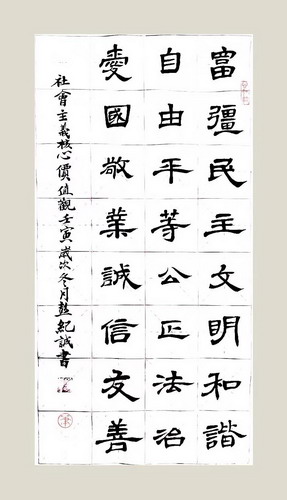 富彊民主文明和諧
自由平等公正法治
愛國敬業誠信友善
社會主義核心價值觀壬寅歲次冬月彭紀誠書